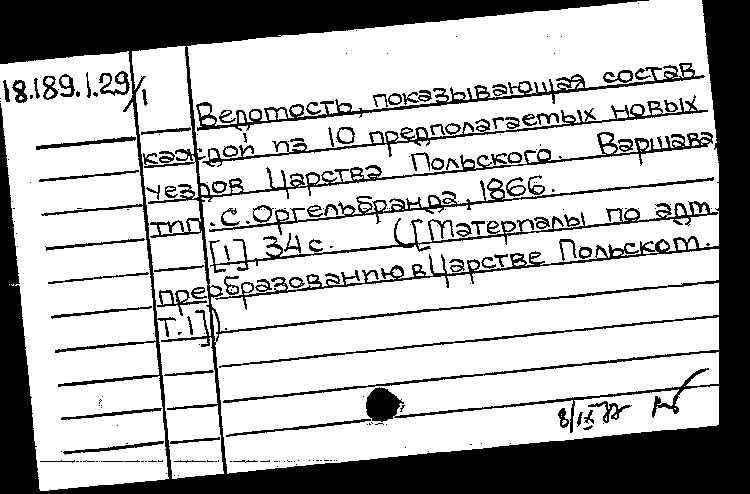 18.189.1.29/1
Ведомость, показывающая состав
каждой из 10 предполагаемых новых
уездов Царства Польского. Варшава,
тип. С. Оргельбранда, 1866.
[1], 34 с. ([Материалы по адм.
преобразованию в Царстве Польском.
Т. 1])